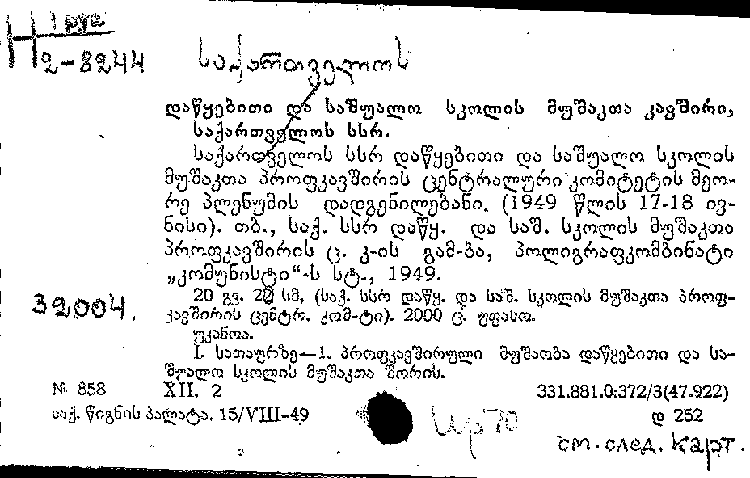 1 დუბ
H 2-8244
საქართველოს
დაწყებითი და საშუალო სკოლის მუშაკთა კავშირი,
საქართველოს სსრ.
საქართველოს სსრ დაწყებითი და საშუალო სკოლის
მუშაკთა პროფკავშირის ცენტრალური კომიტეტის მეო-
რე პლენუმის დადგენილებანი. (1949 წლის 17-18 ივ-
ნისი). თბ., საქ. სსრ დაწყ. და საშ. სკოლის მუშაკთა
პროფკავშირის ც. კ-ის გამ-ბა, პოლიგრაფკომბინატი
„კომუნისტი“-ს სტ., 1949.
20 გვ. 20 სმ. (საქ. სსრ დაწყ. და საშ. სკოლის მუშაკთა პროფ-
კავშირის ცენტრ. კომ-ტი). 2000 ც. უფასო.
32004.
უკანოა.
I. სათაურზე—1. პროფკავშირული მუშაობა დაწყებითი და სა-
შუალო სკოლის მუშაკთა შორის.
№ 858 XII. 2 331.881.0:372/3(47.922)
საქ. წიგნის პალატა. 15/VIII-49 დ 252
см. след. карт.